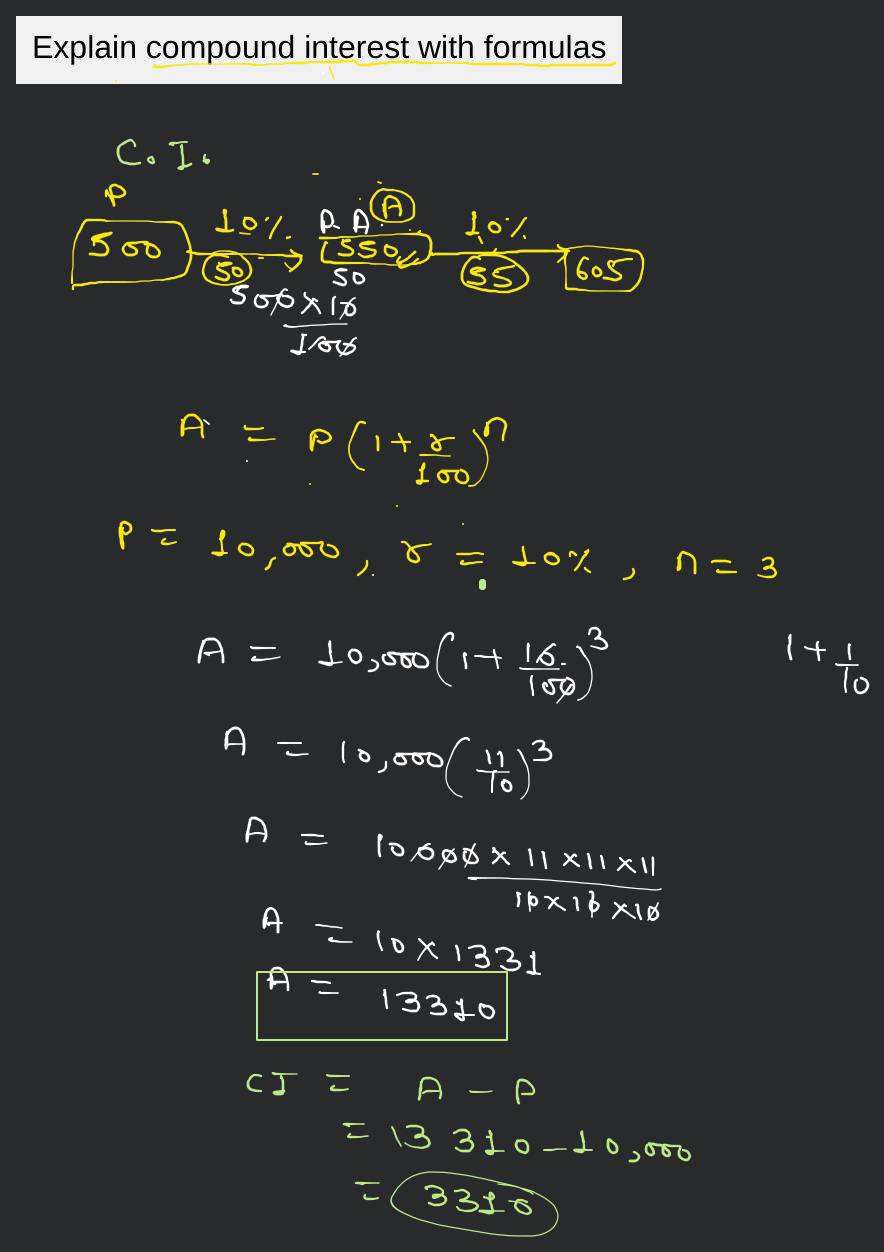 Explain compound interest with formulas
C.I.
P
10% P A A 10%
500 550 605
50 50 55
500 × 10
100
A = P(1 + r/100)^n
P = 10,000, r = 10%, n = 3
A = 10,000(1 + 10/100)^3 1 + 1/10
A = 10,000(11/10)^3
A = 10,000 × 11 × 11 × 11
10 × 10 × 10
A = 10 × 1331
A = 13310
CI = A - P
= 13310 - 10,000
= 3310